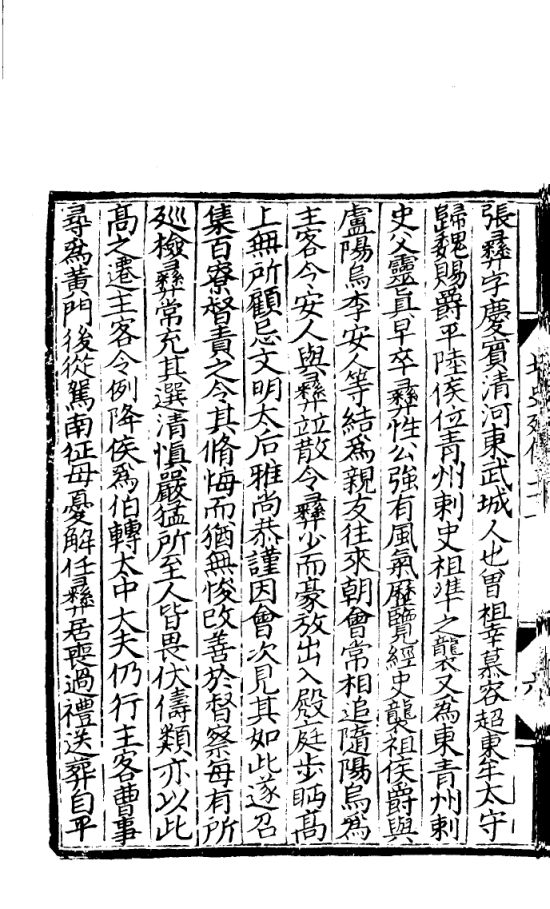 張彞字慶賓清河東武城人也曽祖幸慕容超東牟太守
歸魏賜爵平陸侯位青州刺史祖準之襲又為東青州刺
史父靈真早卒彞性公強有風氣歷覽經史襲祖侯爵與
盧陽烏李安人等結爲親友往來朝會常相追隨陽烏爲
主客令安人與彞並散令彞少而豪放出入殿庭步眄髙
上無所顧忌文明太后雅尚恭謹因會次見其如此遂召
集百寮督責之令其脩悔而猶無悛改善於督察每有所
巡檢彞常充其選清慎嚴猛所至人皆畏伏儔類亦以此
髙之遷主客令例降侯爲伯轉太中大夫仍行主客曹事
尋爲黃門後從駕南征母憂解任彞居喪過禮送葬自平
六